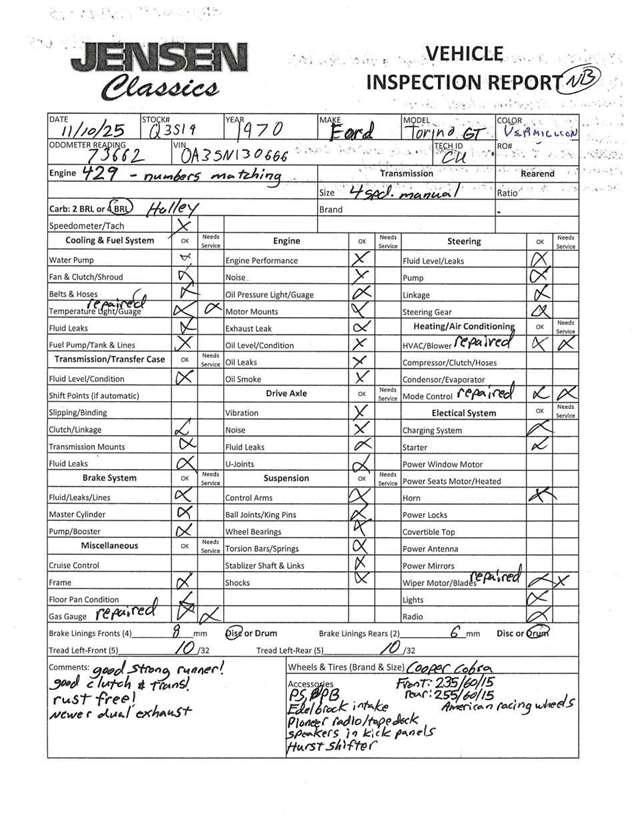 JENSEN
Classics
VEHICLE
INSPECTION REPORT NB
DATE 11/10/25 STOCK# Q3519 YEAR 1970 MAKE Ford MODEL Torino GT COLOR VERMILLION
ODOMETER READING 73662 VIN 0A35N130666 TECH ID CU RO#
Engine 429 - numbers matching Transmission Rearend
Size 4 spd. manual Ratio
Carb: 2 BRL or 4 BRL Holley Brand
Speedometer/Tach
Cooling & Fuel System OK Needs Service Engine OK Needs Service Steering OK Needs Service
Water Pump Engine Performance Fluid Level/Leaks
Fan & Clutch/Shroud Noise Pump
Belts & Hoses Oil Pressure Light/Guage Linkage
Temperature Light/Guage repaired Motor Mounts Steering Gear
Fluid Leaks Exhaust Leak Heating/Air Conditioning OK Needs Service
Fuel Pump/Tank & Lines Oil Level/Condition HVAC/Blower repaired
Transmission/Transfer Case OK Needs Service Oil Leaks Compressor/Clutch/Hoses
Fluid Level/Condition Oil Smoke Condensor/Evaporator
Shift Points (if automatic) Drive Axle OK Needs Service Mode Control repaired
Slipping/Binding Vibration Electical System OK Needs Service
Clutch/Linkage Noise Charging System
Transmission Mounts Fluid Leaks Starter
Fluid Leaks U-Joints Power Window Motor
Brake System OK Needs Service Suspension OK Needs Service Power Seats Motor/Heated
Fluid/Leaks/Lines Control Arms Horn
Master Cylinder Ball Joints/King Pins Power Locks
Pump/Booster Wheel Bearings Covertible Top
Miscellaneous OK Needs Service Torsion Bars/Springs Power Antenna
Cruise Control Stablizer Shaft & Links Power Mirrors
Frame Shocks Wiper Motor/Blades repaired
Floor Pan Condition Lights
Gas Gauge repaired Radio
Brake Linings Fronts (4) 8 mm Disc or Drum Brake Linings Rears (2) 6 mm Disc or Drum
Tread Left-Front (5) 10 /32 Tread Left-Rear (5) 10 /32
Comments: good strong runner!
good clutch & trans!
rust free!
newer dual exhaust
Wheels & Tires (Brand & Size) Cooper Cobra
Accessories Front: 235/60/15
PS, PB rear: 255/60/15
Edelbrock intake American racing wheels
Pioneer radio/tape deck
speakers in kick panels
Hurst shifter